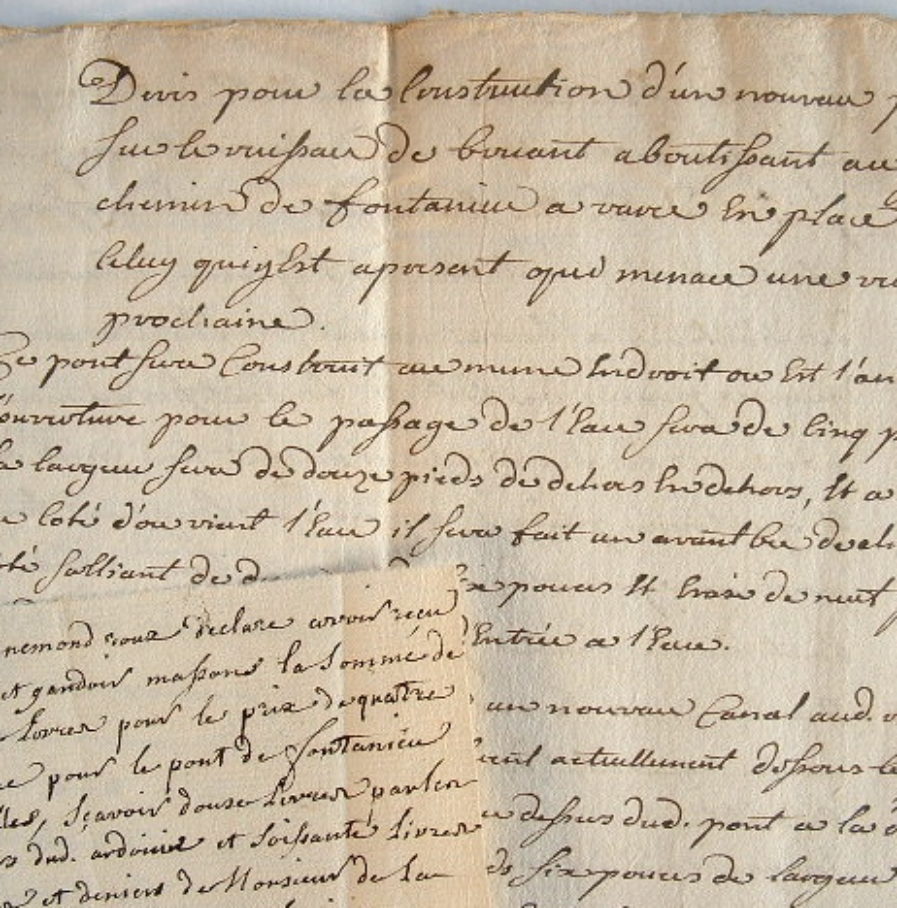 Devis pour la Construction d'un nouveau
sur le ruisseau de bruant aboutissant au
chemin de fontanieu a vavre En place
Celuy quiy Est apresent qui menace une
prochaine.
Ce pont sera Construit au meme Endroit ou Est l'an
l'ouverture pour le passage de l'Eau sera de Cinq p
la largeur sera de douze pieds de dehors En dehors, Et a
Coté d'ou vient l'Eau il sera fait un avant bec de
salliant de d
pouces Et Evasé de neuf
Entrée a l'Eau.
un nouveau Canal aud.
actuellement dessous le
dessus dud. pont a la
six pouces de largeur
declare avoir receu
et gandoin massons la somme de
Livres pour le prix de quatre
pour le pont de fontanieu
sçavoir douse Livres par les
dud. ardoinie et soissante Livres
et deniers de Monsieur de La